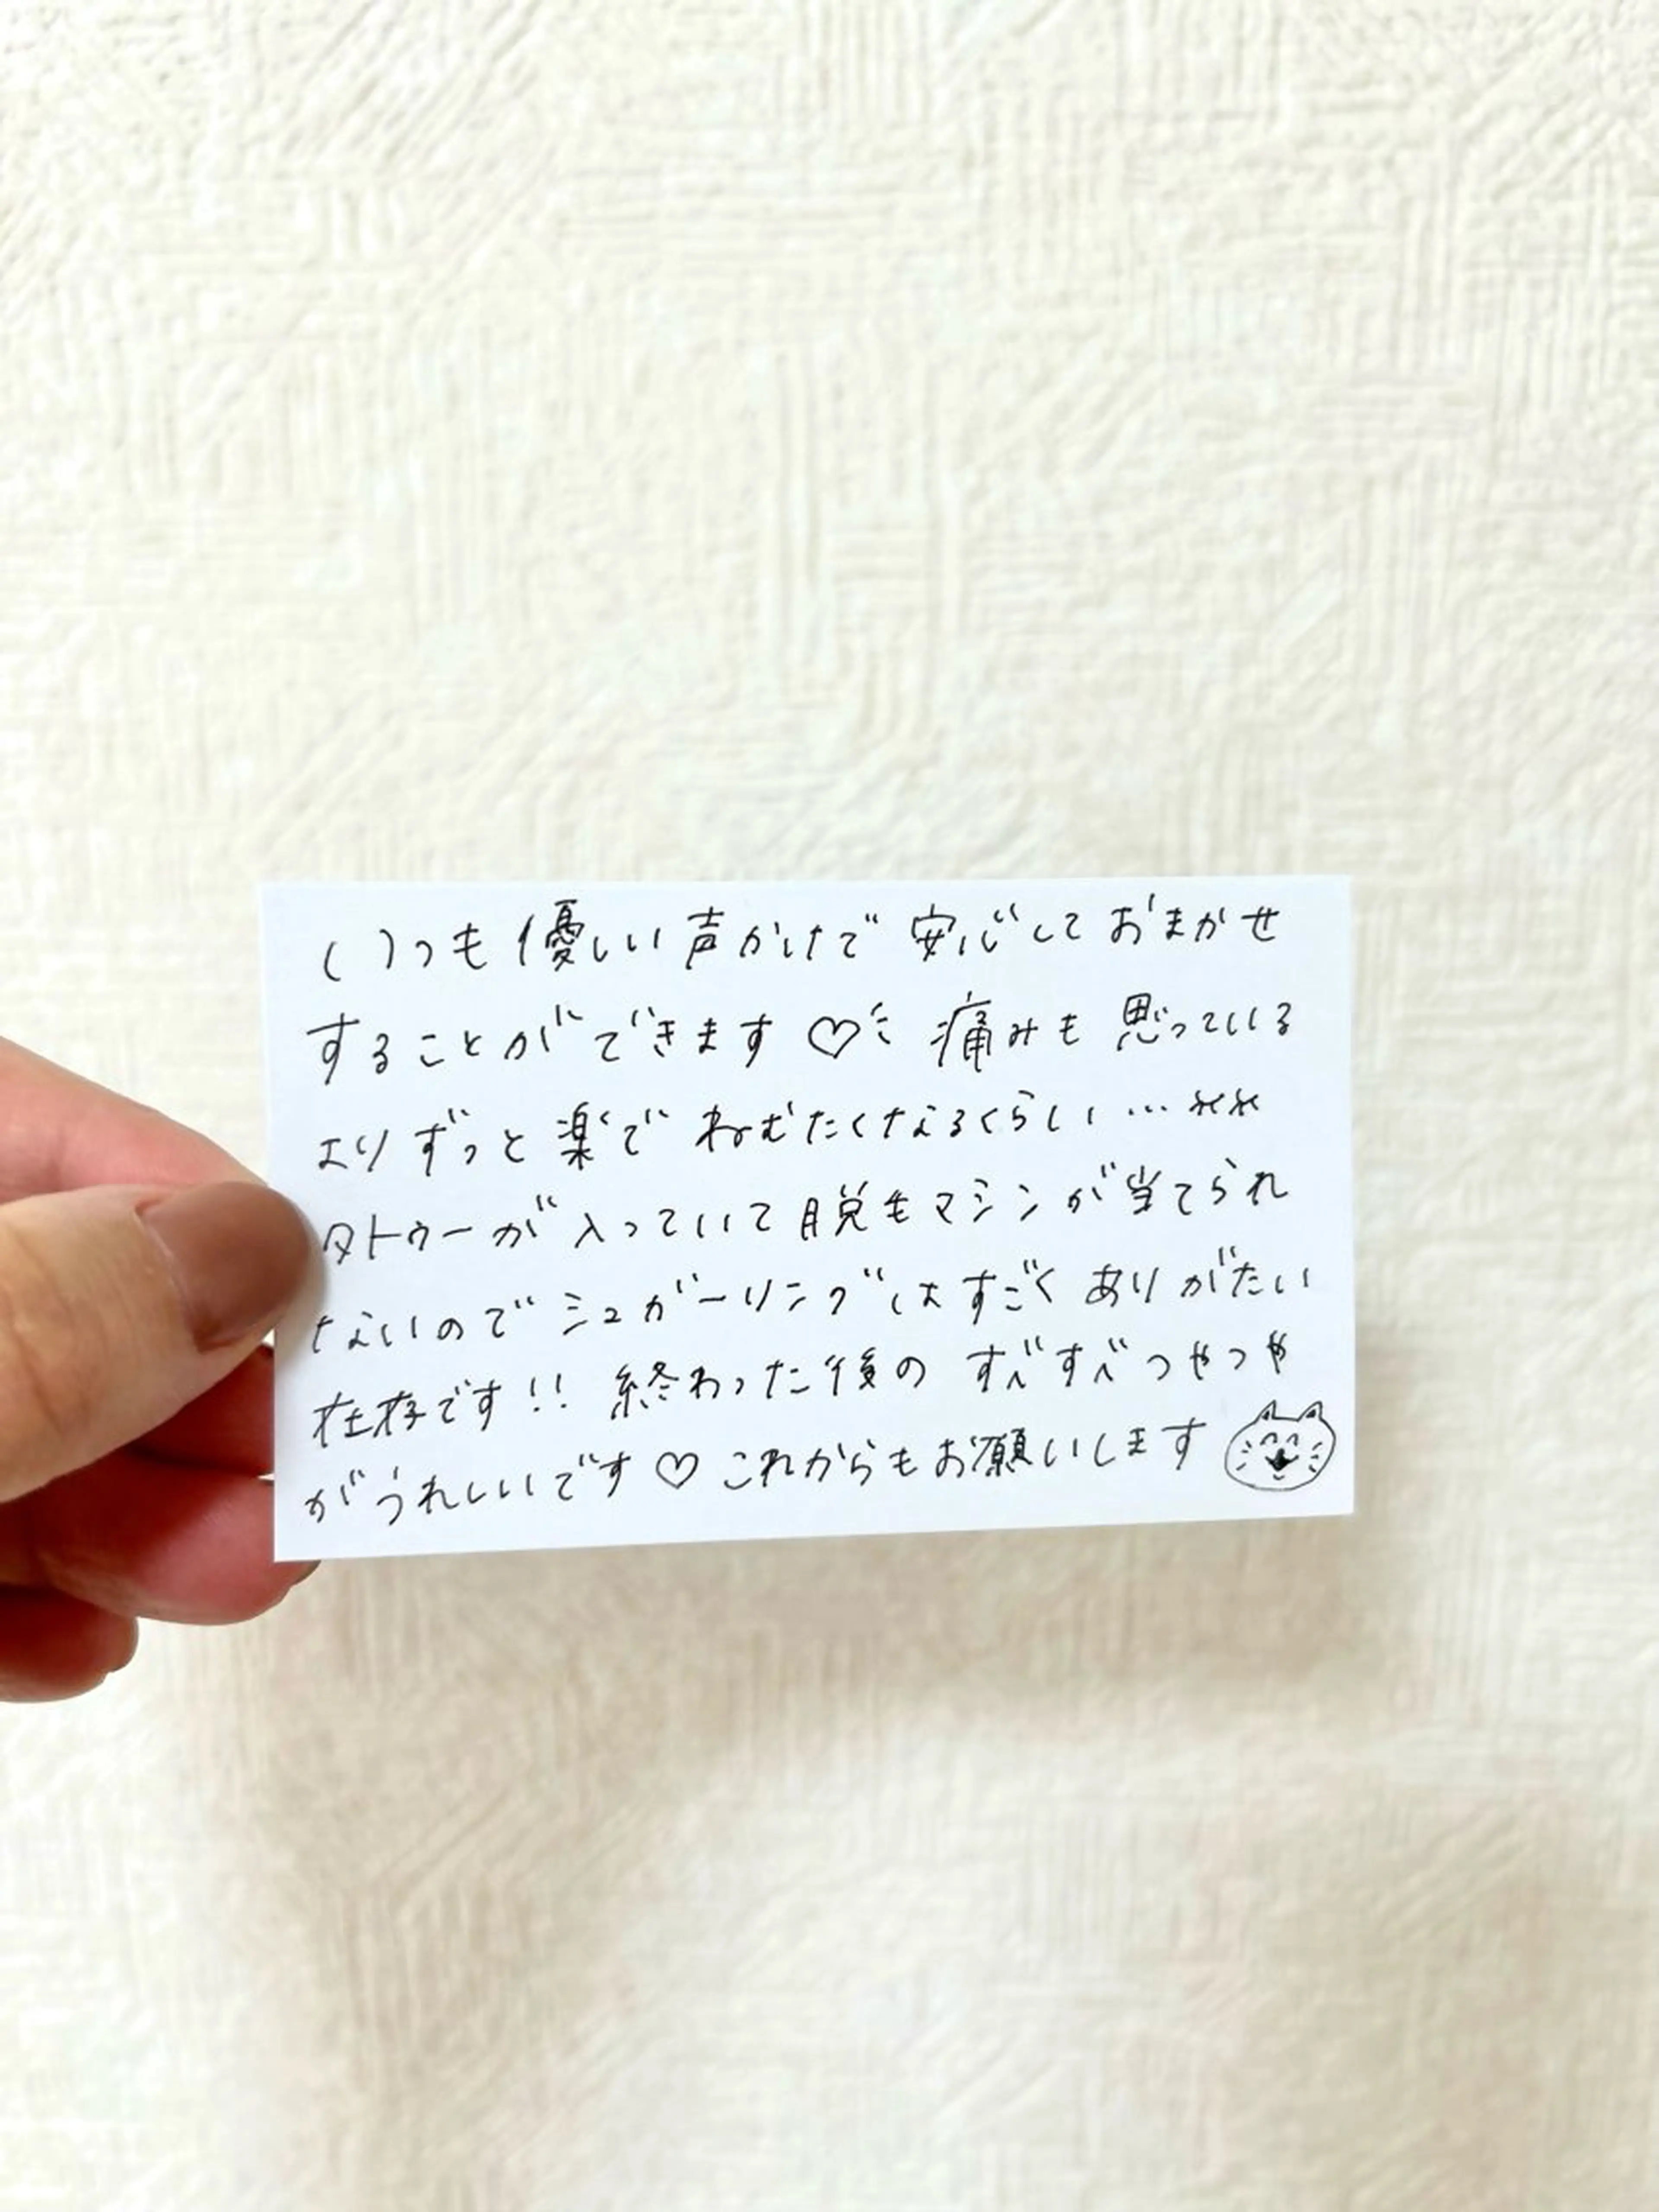 いつも優しい声かけで安心しておまかせ
することができます♡ 痛みも思っている
よりずっと楽でねむたくなるくらい…
タトゥーが入っていて脱毛マシンが当てられ
ないのでシュガーリングはすごくありがたい
存在です!! 終わった後のすべすべつやつや
がうれしいです♡これからもお願いします